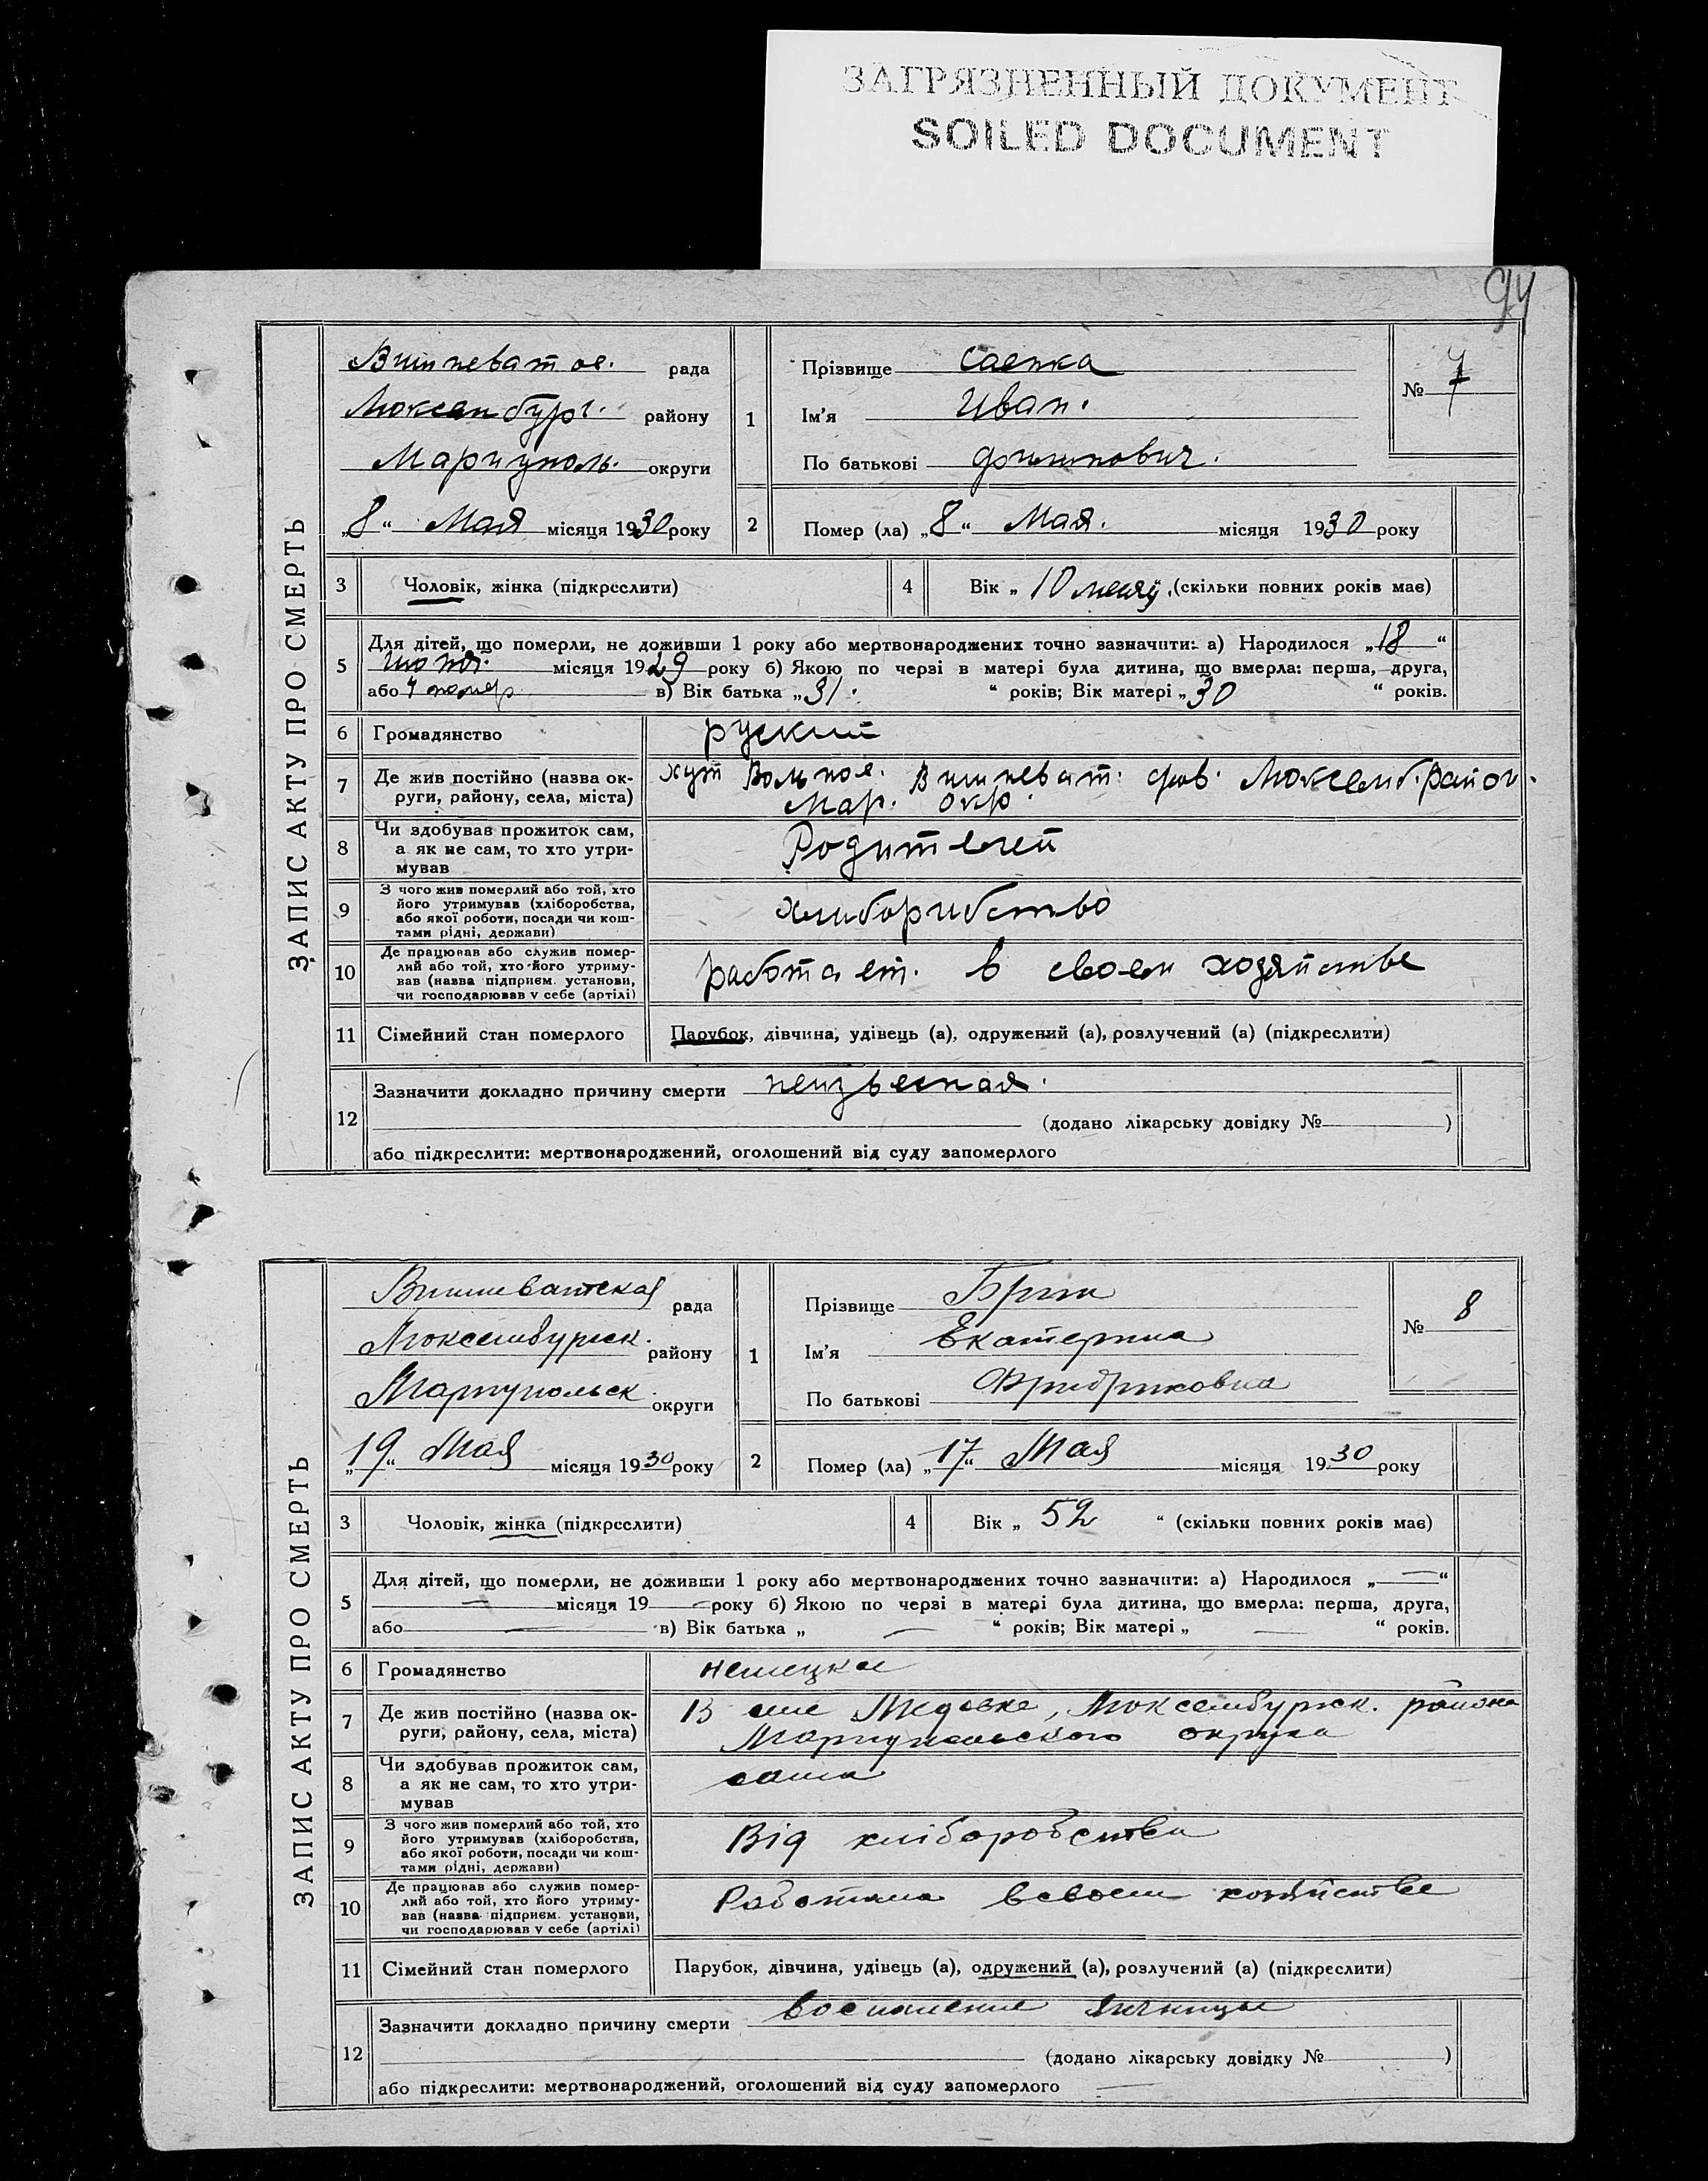 ЗАГРЯЗНЕННЫЙ ДОКУМЕНТ
SOILED DOCUMENT
94
ЗАПИС АКТУ ПРО СМЕРТЬ
Вишневатое. рада
Люксенбург. району
Мариуполь. округи
„8“ Мая місяця 1930 року
1 Прізвище Саенка
Ім'я Иван.
По батькові
№ 7
2 Помер (ла) „8“ Мая. місяця 1930 року
3 Чоловік, жінка (підкреслити)
4 Вік „10 (скільки повних років має)
5 Для дітей, що померли, не доживши 1 року або мертвонароджених точно зазначити: а) Народилося „18“
місяця 1929 року б) Якою по черзі в матері була дитина, що вмерла: перша, друга,
або 4 в) Вік батька „31. “ років; Вік матері „30 “ років.
6 Громадянство руский
7 Де жив постійно (назва округи, району, села, міста) хут Вольное. Вишневат. Люксемб. район.
Мар. окр.
8 Чи здобував прожиток сам, а як не сам, то хто утримував Родителей
9 З чого жив померлий або той, хто його утримував (хліборобства, або якої роботи, посади чи коштами рідні, держави) хлиборибство
10 Де працював або служив померлий або той, хто його утримував (назва підприєм. установи, чи господарював у себе (артілі) работает. в своем хозяйстве
11 Сімейний стан померлого Парубок, дівчина, удівець (а), одружений (а), розлучений (а) (підкреслити)
12 Зазначити докладно причину смерти неизвесная.
(додано лікарську довідку № )
або підкреслити: мертвонароджений, оголошений від суду запомерлого
ЗАПИС АКТУ ПРО СМЕРТЬ
Вишневатская рада
Люксембургск. району
Мариупольск. округи
„19“ Мая місяця 1930 року
1 Прізвище Брин
Ім'я Екатерина
По батькові Фридриковна
№ 8
2 Помер (ла) „17“ Мая місяця 1930 року
3 Чоловік, жінка (підкреслити)
4 Вік „52“ (скільки повних років має)
5 Для дітей, що померли, не доживши 1 року або мертвонароджених точно зазначити: а) Народилося „—“
— місяця 19— року б) Якою по черзі в матері була дитина, що вмерла: перша, друга,
або — в) Вік батька „ — “ років; Вік матері „ — “ років.
6 Громадянство немецкое
7 Де жив постійно (назва округи, району, села, міста) В селе Медовке, Люксембургск. района
Мариупольского округа
8 Чи здобував прожиток сам, а як не сам, то хто утримував сама
9 З чого жив померлий або той, хто його утримував (хліборобства, або якої роботи, посади чи коштами рідні, держави) Від хліборобства
10 Де працював або служив померлий або той, хто його утримував (назва підприєм. установи, чи господарював у себе (артілі) Работала всвоем хозяйстве
11 Сімейний стан померлого Парубок, дівчина, удівець (а), одружений (а), розлучений (а) (підкреслити)
12 Зазначити докладно причину смерти воспаление
(додано лікарську довідку № )
або підкреслити: мертвонароджений, оголошений від суду запомерлого —